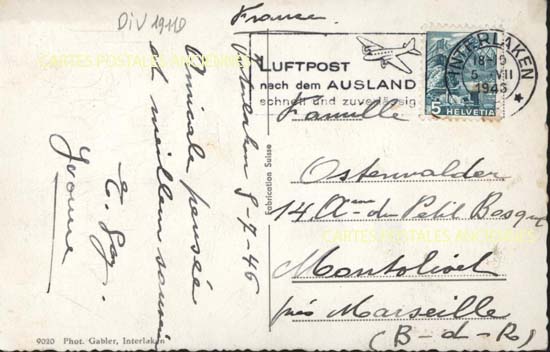 DIV 19110
France.
LUFTPOST
nach dem AUSLAND
schnell und zuverlässig
INTERLAKEN
18-19
5 VII
1946
5 HELVETIA
Interlaken 5-7-46
Amicale pensée
et meilleur souvenir
Yvonne
Famille
Ostenwalder
14 Aven du Petit Bosquet
Montolivet
près Marseille
(B-d-R)
Fabrication Suisse
9020 Phot. Gabler, Interlaken
CARTES POSTALES ANCIENNES
CARTES POSTALES ANCIENNES